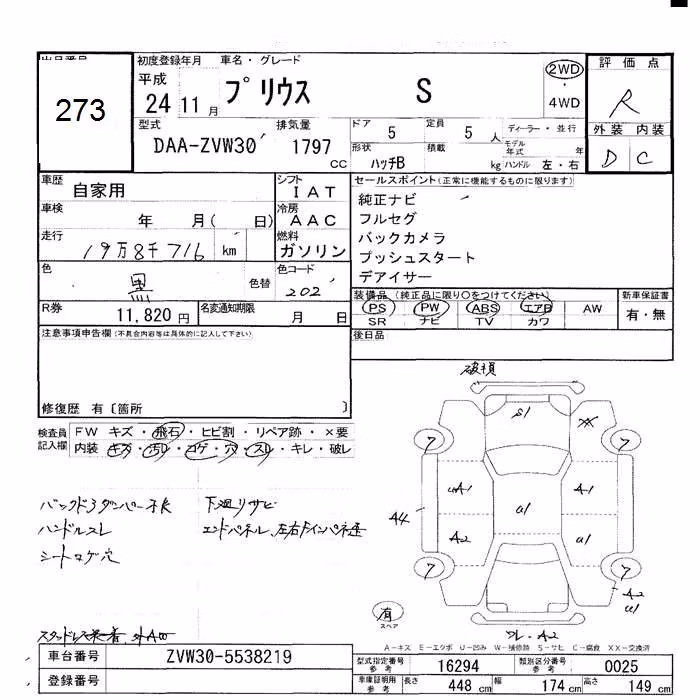 出品番号
273
初度登録年月 車名・グレード
平成 24 11 月
プリウス S
2WD
・
4WD
評価点
R
外装 内装
D C
型式 排気量 ドア 5 定員 5 人 ディーラー・並行
DAA-ZVW30 1797 CC
形状 ハッチB 積載 kg モデル年式 年
ハンドル 左・右
車歴 自家用
シフト IAT
車検 年 月( 日)
冷房 AAC
走行 19万8千716 km
燃料 ガソリン
色 黒 色替
色コード 202
R券 11,820円
名変通知期限 月 日
セールスポイント(正常に機能するものに限ります)
純正ナビ
フルセグ
バックカメラ
プッシュスタート
デアイサー
装備品(純正品に限り○をつけてください)
新車保証書
PS PW ABS エアB AW
SR ナビ TV カワ
有・無
後日品
注意事項申告欄(不具合内容等は具体的に記入して下さい)
修復歴 有〔箇所 〕
検査員記入欄
FW キズ・飛石・ヒビ割・リペア跡・×要
内装 キズ・汚レ・コゲ・穴・スレ・キレ・破レ
ハンドルスレ
シートコゲ穴
下廻りサビ
破損
S1
XX
7
7
A1
A1
U1
A4
A2
U1
7
7
A2
U1
有
スペア
A2
A-キズ E-エクボ U-凹み W-補修跡 S-サビ C-腐食 XX-交換済
車台番号 ZVW30-5538219
登録番号
型式指定番号 参考 16294 類別区分番号 参考 0025
車庫証明用 参考 長さ 448 cm 幅 174 cm 高さ 149 cm